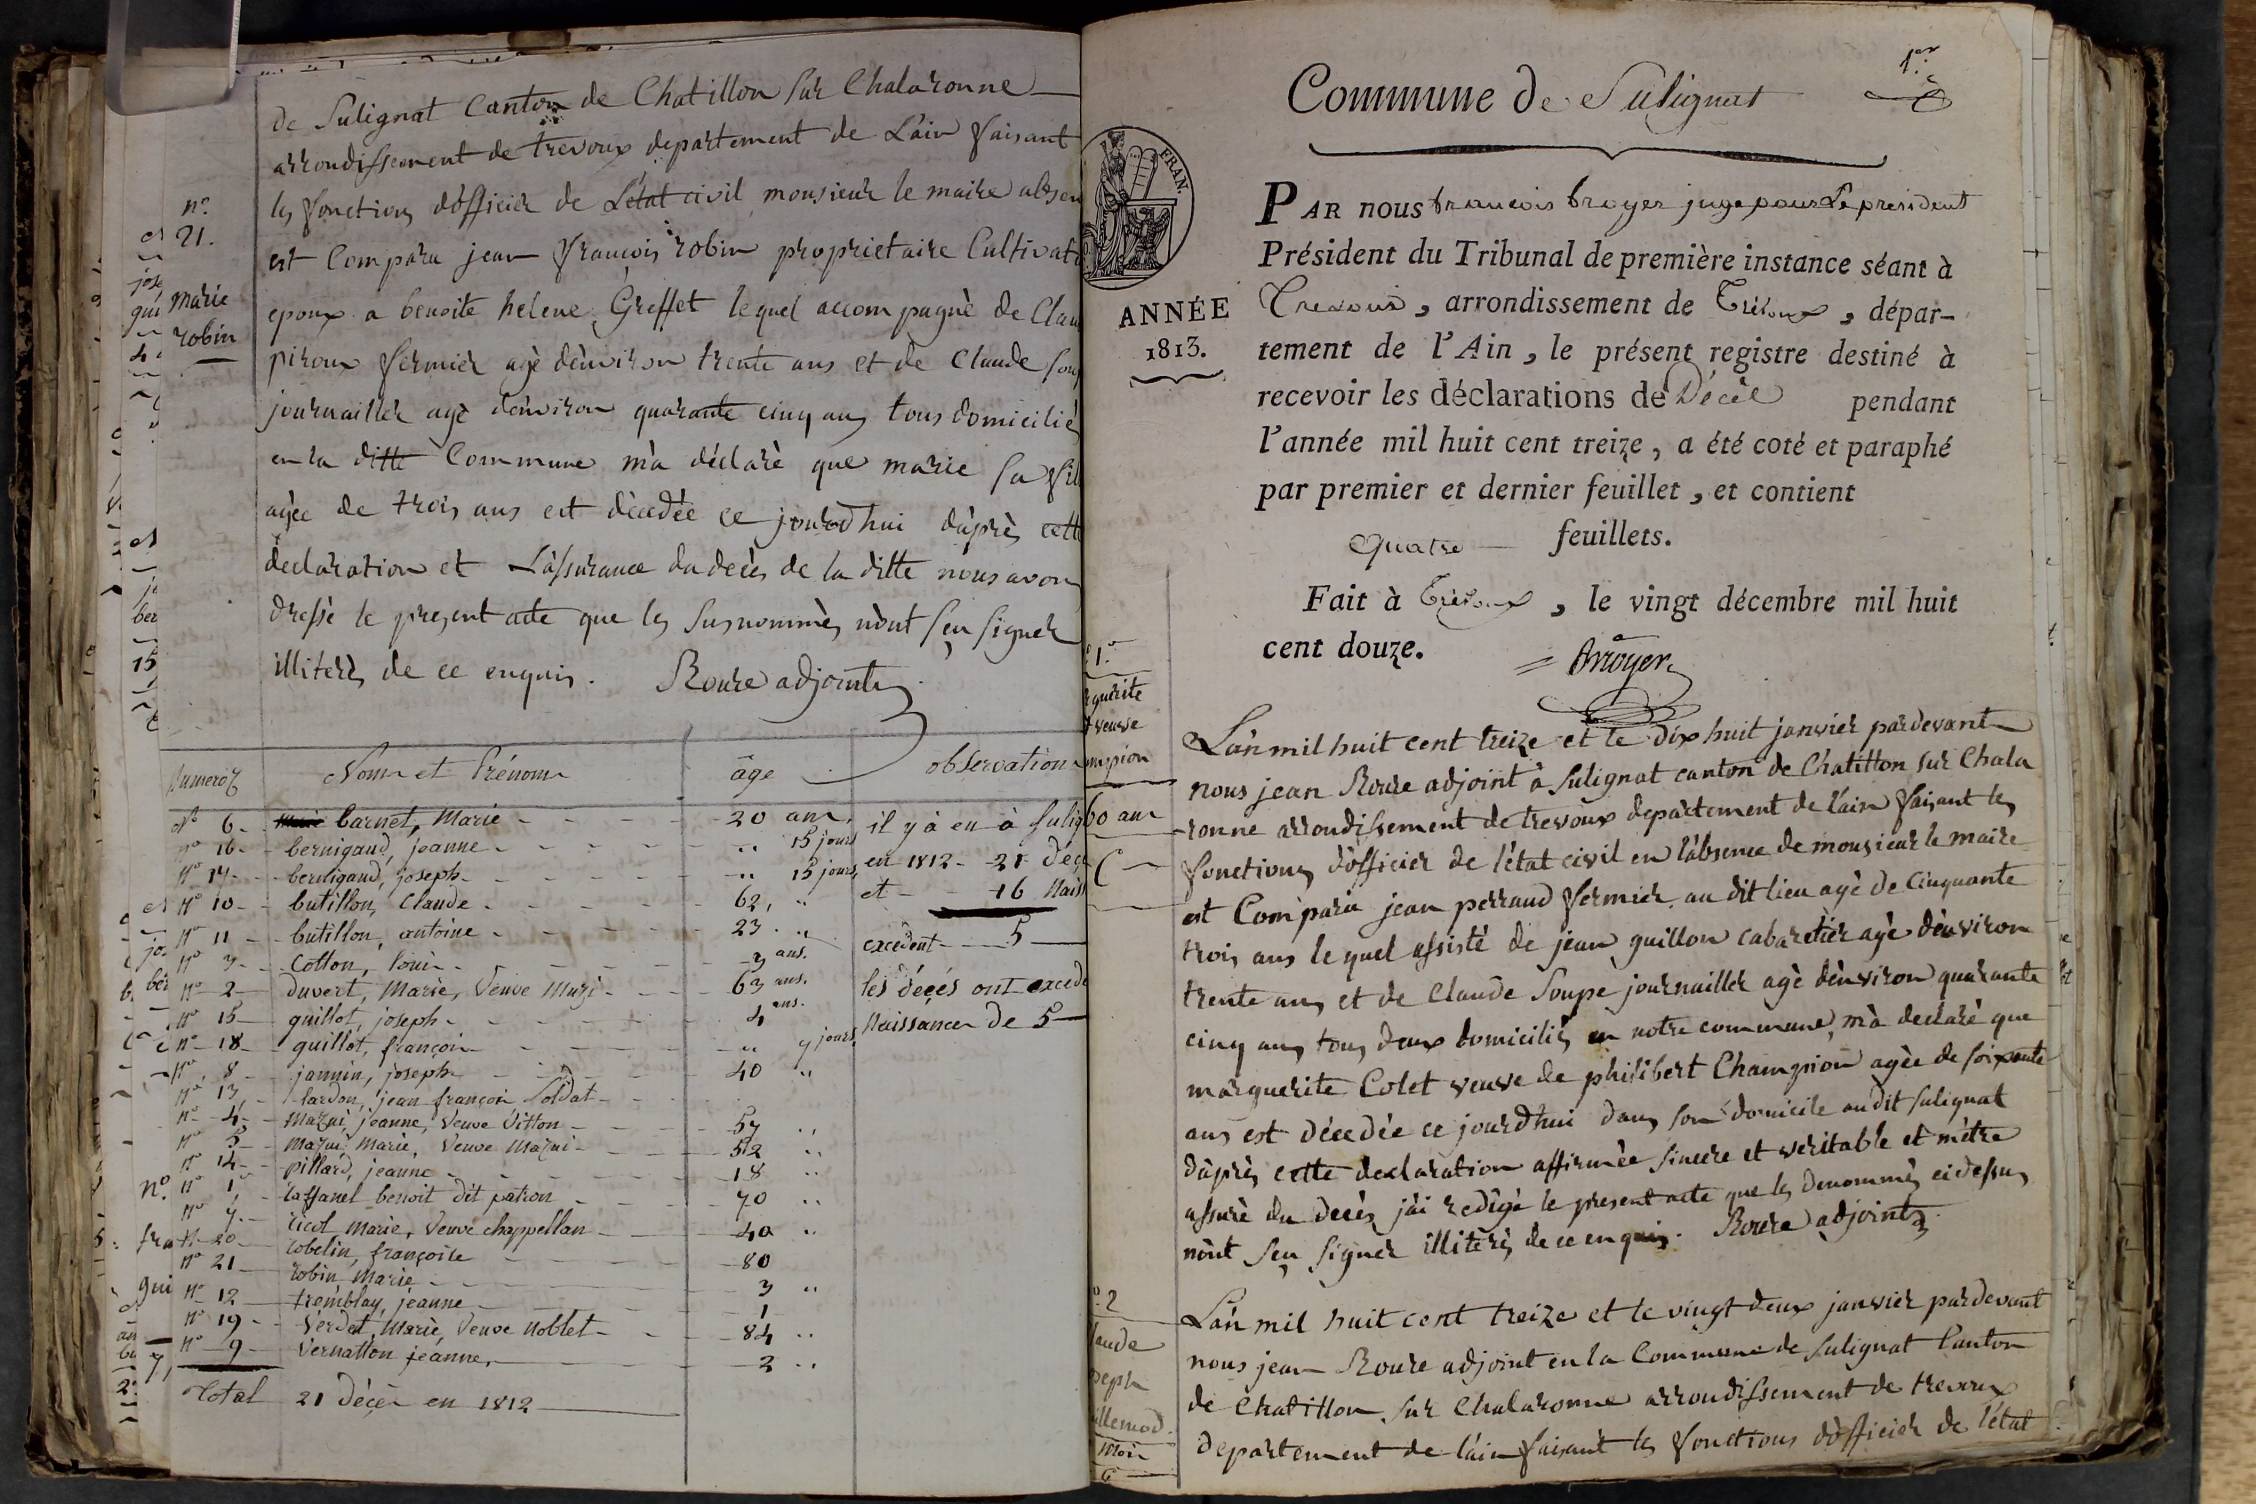 de Sulignat Canton de Chatillon sur Chalaronne
arrondissement de trevoux departement de L'ain faisant
les fonctions d'officier de L'état civil monsieur le maire absen
est Comparu jean françois robin proprietaire Cultivat
epoux a benoite helene Greffet lequel accompagné de Clau
piroux fermier agé d'environ trente ans et de Claude Soup
journaillier agé d'environ quarante cinq ans tous domicilié
en la ditte Commune m'a déclaré que marie sa fil
agée de trois ans est décedée ce jourd'hui d'après cette
declaration et L'assurance du decès de la ditte nous avon
dressé le present acte que les susnommés n'ont sçu signer
illiterés de ce enquis. Roure adjoint
n°.
21.
marie
robin
Numeros Nom et Prénom âge observation
N° 6 barnet, Marie 20 ans.
n° 16 bernigaud, jeanne 15 jours
N° 17 bernigaud, joseph 15 jours
N° 10 butillon, Claude 62
N° 11 butillon, antoine 23
N° 3 Cotton, louis 3 ans.
N° 2 duvert, Marie, Veuve 63 ans.
N° 15 guillot, joseph 4 ans.
n° 18 guillot, françois 7 jours
N° 8 jannin, joseph 40
N° 13 lardon, jean françois Soldat
N° 4 jeanne, Veuve Vitton 57
N° 5 Marie, Veuve 52
N° 14 pillard, jeanne 18
N° 1er benoit dit patron 70
N° 7 ricol, Marie, Veuve chappellan 40
N° 20 robelin, françoise 80
N° 21 robin, Marie 3
N° 12 tremblay, jeanne 1
N° 19 Verdet, Marie, Veuve Noblet 84
N° 9 Vernatton jeanne, 2
Total 21 décès en 1812
il y a eu à Sulig
en 1812 - 21 décè
et 16 Naiss
excedent 5
les décés ont excedé
Naissances de 5
1er
Commune de Sulignat
FRAN.
ANNÉE
1813.
PAR nous françois broyer juge pour Le president
Président du Tribunal de première instance séant à
Trevoux, arrondissement de Trévoux, dépar-
tement de l'Ain, le présent registre destiné à
recevoir les déclarations de Décès pendant
l'année mil huit cent treize, a été coté et paraphé
par premier et dernier feuillet, et contient
quatre feuillets.
Fait à Trévoux, le vingt décembre mil huit
cent douze.
Broyer
1.er
rguerite
t veuve
mpion
60 ans
L'an mil huit cent treize et le dix huit janvier pardevant
nous jean Roure adjoint à Sulignat canton de Chatillon sur Chala
ronne arrondissement de trevoux departement de l'ain faisant les
fonctions d'officier de l'état civil en l'absence de monsieur le maire
est Comparu jean perraud fermier au dit lieu agé de cinquante
trois ans lequel assisté de jean guillon cabaretier agé d'environ
trente ans et de Claude Soupe journaillier agé d'environ quarante
cinq ans tous deux domiciliés en notre commune, m'a declaré que
marguerite Colet veuve de philibert Champion agée de soixante
ans est décedée ce jourd'hui dans son domicile au dit Sulignat
d'après cette declaration affirmée sincere et veritable et m'etre
assuré du decès j'ai redigé le present acte que les denommés ci dessus
n'ont sçu signer illiterés de ce enquis. Roure adjoint
n° 2
laude
oseph
uillemod
L'an mil huit cent treize et le vingt deux janvier pardevant
nous jean Roure adjoint en la Commune de Sulignat Canton
de Chatillon sur Chalaronne arrondissement de trevoux
departement de l'ain faisant les fonctions d'officier de l'état